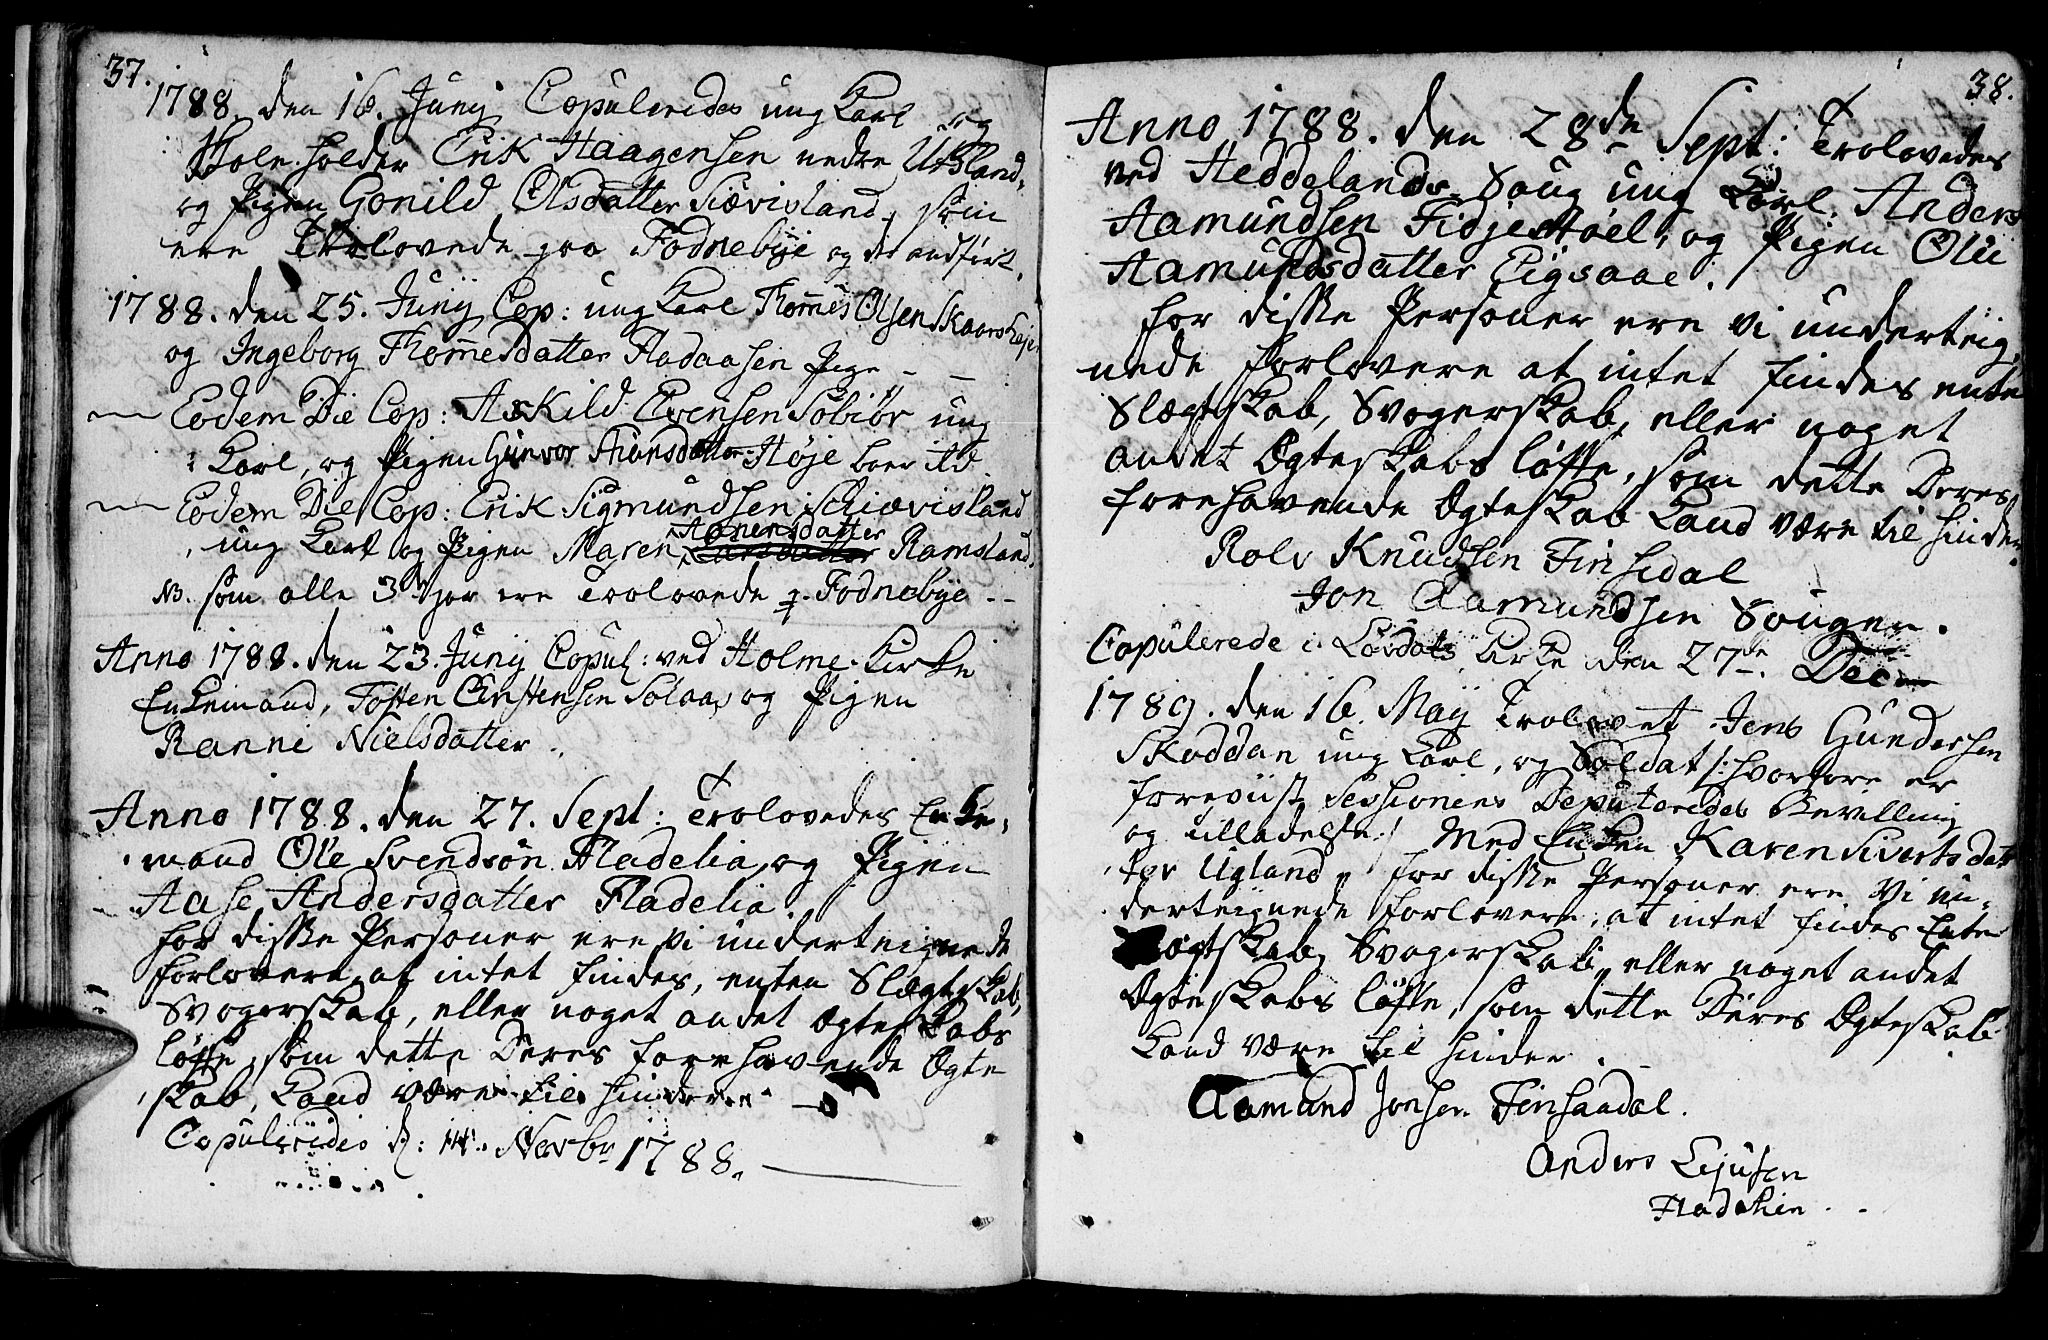 37.
1788. den 16. Junij Copuleredes ung Karl og
Skole-holder Erik Haagensen nedre Udsland,
og Pigen Gonild Olsdatter Siævisland, som
ere Trolovede paa Fodnebye og der andført.
1788. den 25. Junij Cop: ung Karl Thommes Olsen Skaarskejen
og Ingeborg Thommesdatter Fladaasen Pige - -
Eodem Die Cop: Askild Evensen Sobiør ung
Karl, og Pigen Gunvor Thorsdatter Høje boer ibd
Eodem Die Cop: Erik Sigmundsen Schiævisland
ung Karl og Pigen Maren Aanensdatter Ramsland.
NB. som alle 3de par ere Trolovede p. Fodnebye --
Anno 1788. den 23. Junij Copul: ved Holme-Kirke
Enkemand, Tosten Cirstensen Solaas og Pigen
Ranni Nielsdatter.
Anno 1788. den 27. Sept: Trolovedes Enke-
mand Ole Svendsön Fladelia, og Pigen
Aase Andersdatter Fladelia.
for disse Personer ere vi underteignede
forlovere, at intet findes, enten Slægtskab,
Svogerskab, eller noget andet Ægteskabs
løfte, som dette Deres forehavende Ægte
skab, Kand være til hinder
Copuleridis d: 14. Novbr 1788.
38.
Anno 1788. den 28de Sept: Trolovedes
ved Heddelands Soug ung Karl: Anders
Aamundsen Fidjestøel, og Pigen Oli
Aamundsdatter Eigsaae.
for disse Personer ere vi underteig-
nede forlovere at intet findes enten
Slægtskab, Svogerskab, eller noget
andet Ægteskabs løfte, som dette Deres
forehavende Ægteskab Kand være til hinder.
Rolv Knudsen Finsedal
Jon Aamundsen Sougen.
Copulerede i Løvdals Kirke den 27de Dec
1789. den 16. Maij Trolovet Jens Gundersen
Skoddan ung Karl, og Soldat /: hvorfore er
foreviist Sessionens Deputeredes Bevilling
og tilladelse :/ Med Enken Karen Sivertsdat
ter Ugland, for disse Personer ere Vi un-
derteignede forlovere, at intet findes Enten
Slægtskab, Svogerskab, eller noget andet
Ægteskabs løfte, som dette Deres Ægteskab
Kand være til hinder.
Aamund Jonsen Finsaadal.
Anders Lejusen